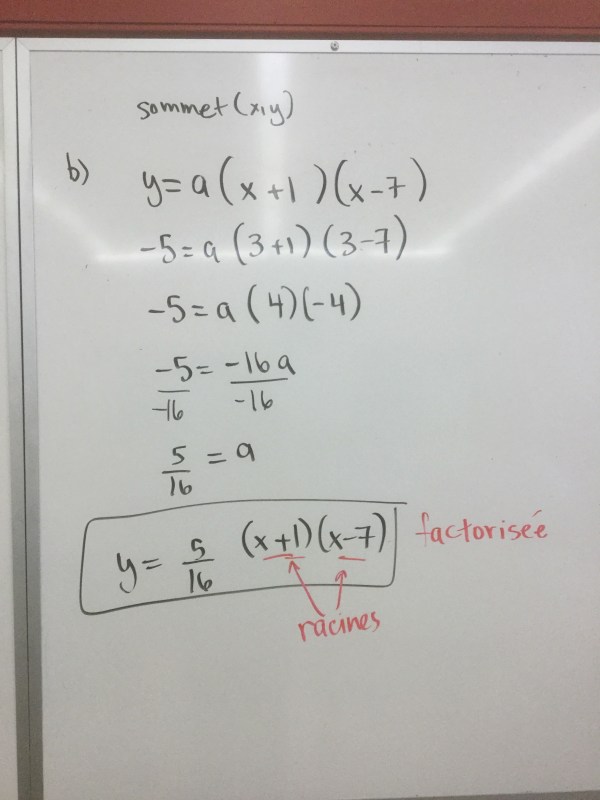 sommet (x,y)
b) y = a (x +1 )(x-7 )
-5 = a (3+1) (3-7)
-5 = a (4)(-4)
-5/-16 = -16a/-16
5/16 = a
y = 5/16 (x+1)(x-7) factorisée
racines